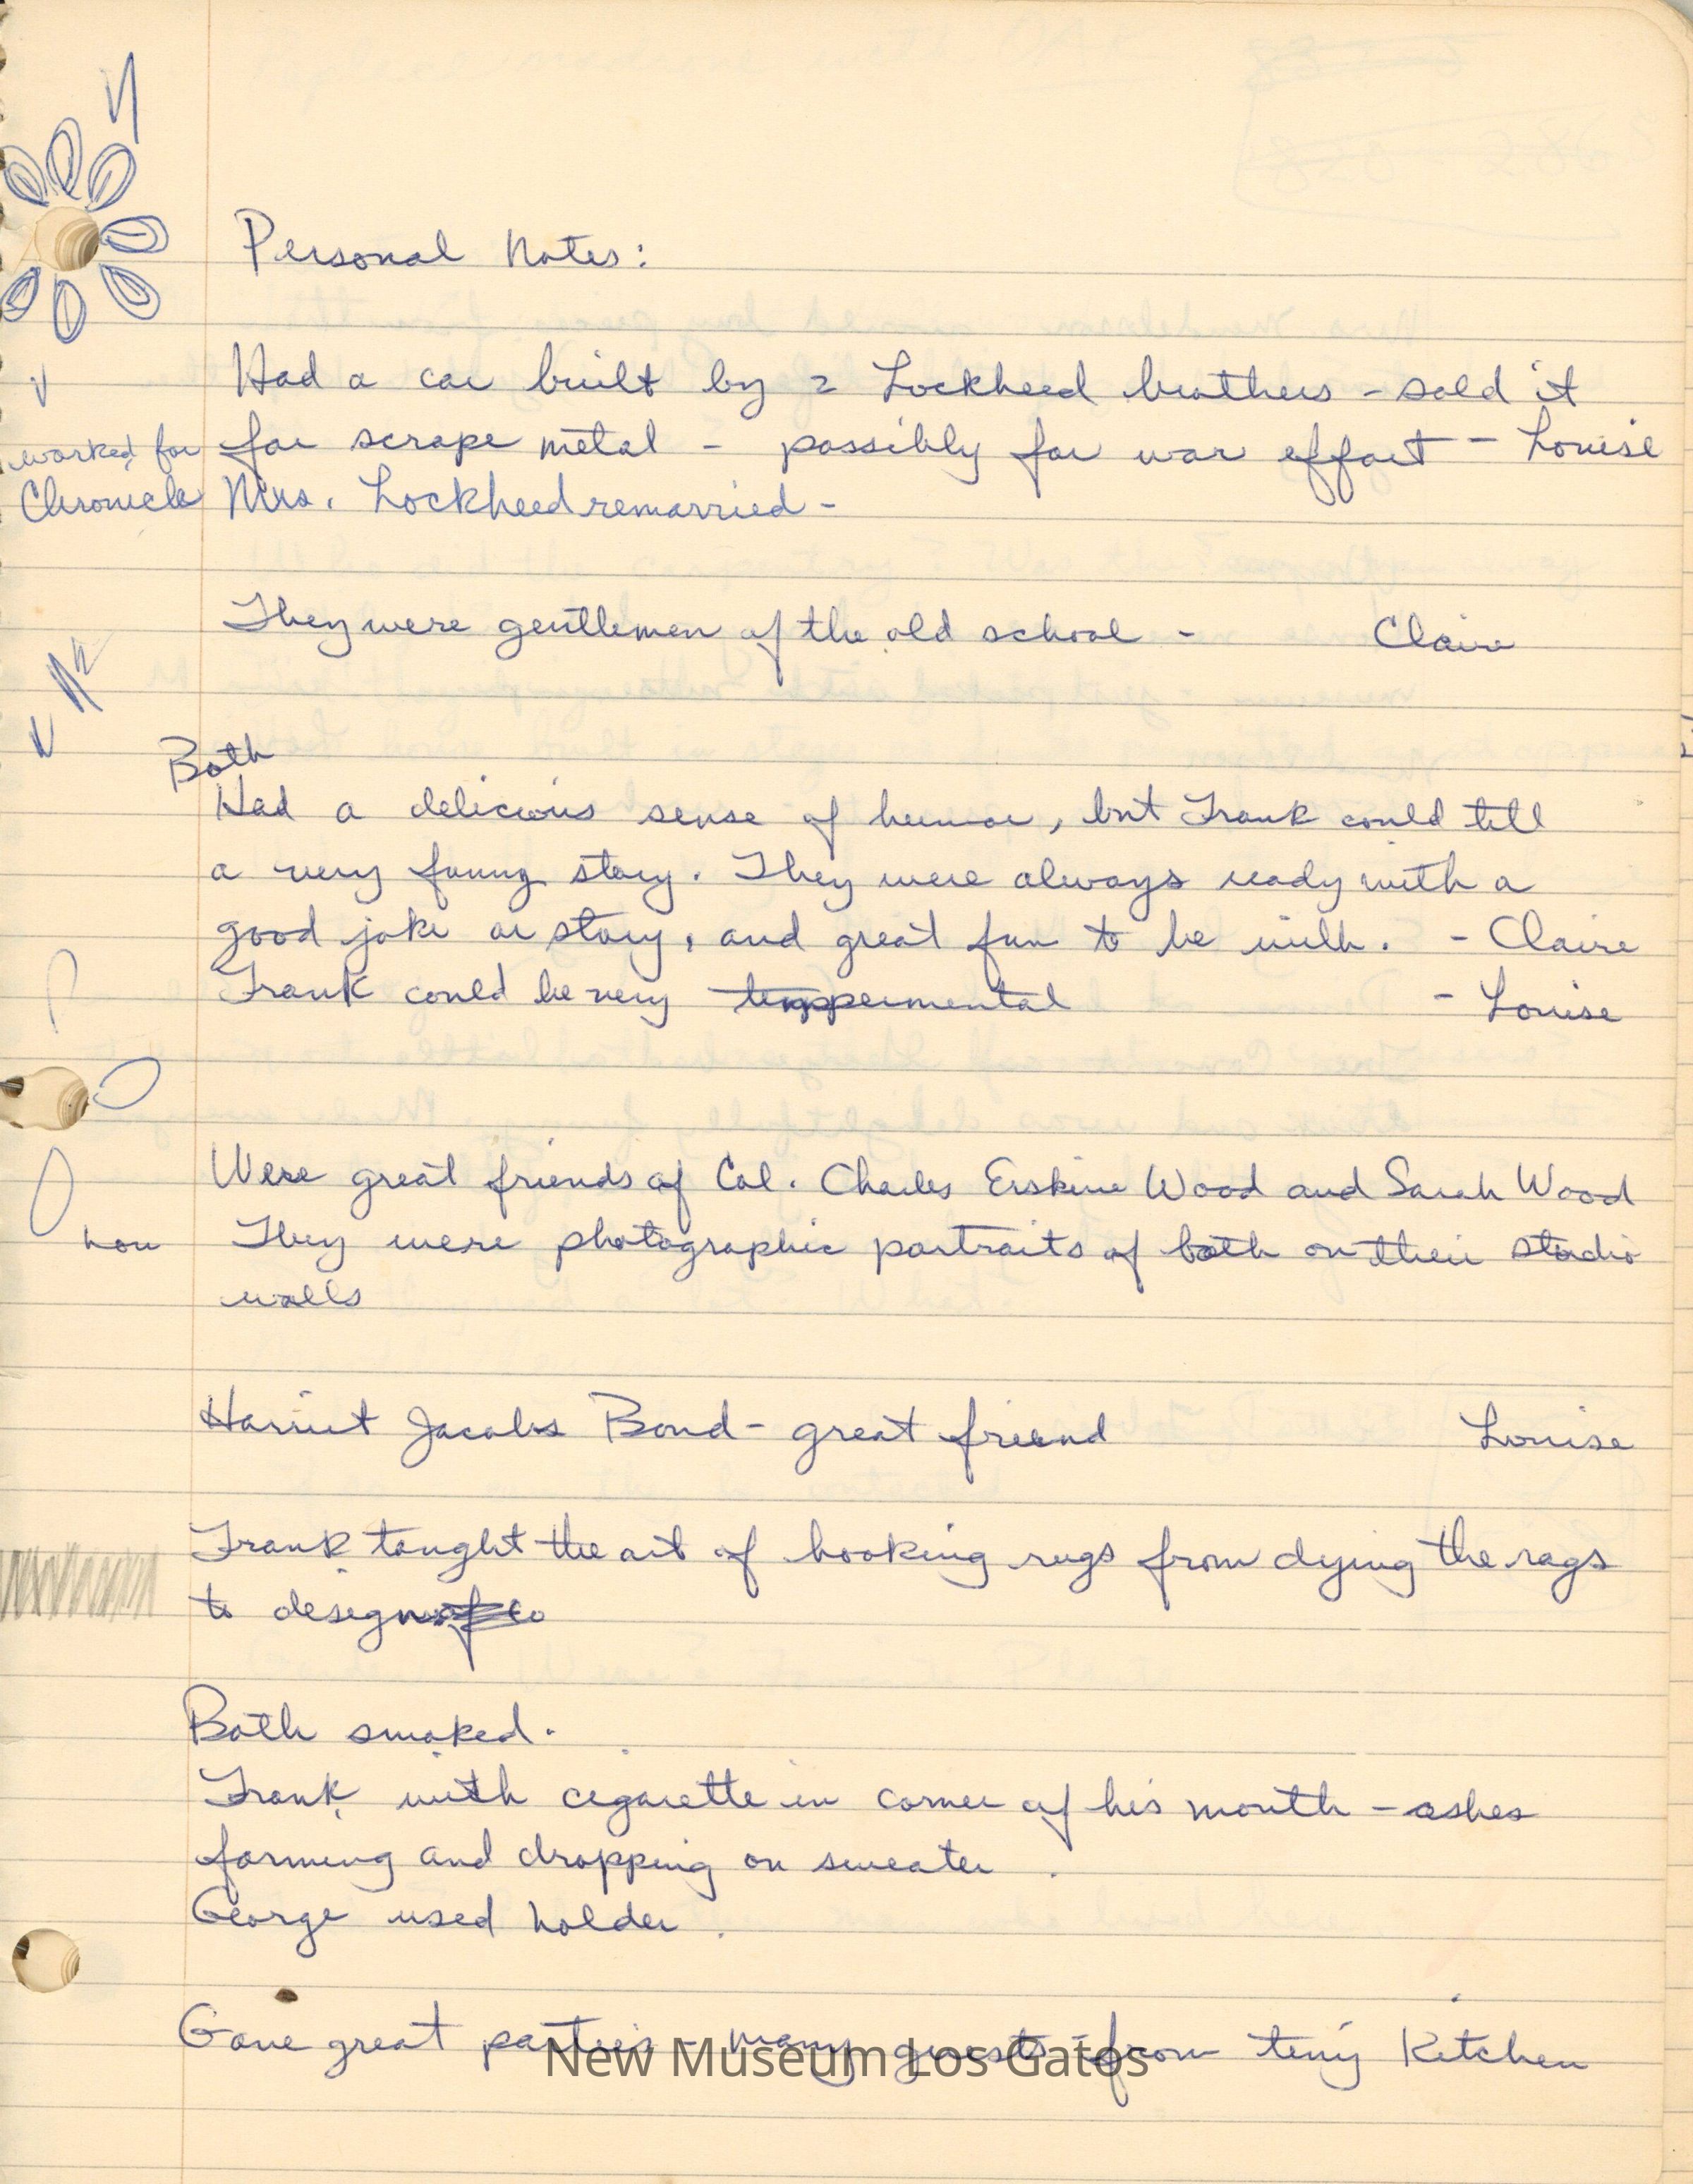 Personal Notes:
Had a car built by 2 Lockheed brothers - sold it
worked for
for scrape metal - possibly for war effort - Louise
Chronicle
Mrs. Lockheed remarried -
They were gentlemen of the old school - Claire
Both
Had a delicious sense of humor, but Frank could tell
a very funny story. They were always ready with a
good joke or story, and great fun to be with. - Claire
Frank could be very tempermental - Louise
Were great friends of Col. Charles Erskine Wood and Sarah Wood
They were photographic portraits of both on their studio
walls
Harriet Jacobs Bond - great friend Louise
Frank taught the art of hooking rugs from dying the rags
to design
Both smoked.
Frank with cigarette in corner of his mouth - ashes
forming and dropping on sweater.
George used holder.
Gave great parties - many guests - from tiny kitchen
New Museum Los Gatos